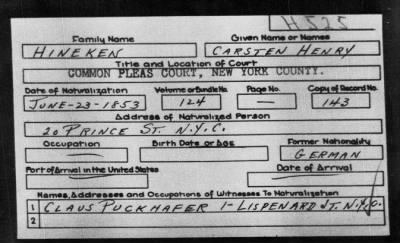 H525
Family Name Given Name or Names
HINEKEN CARSTEN HENRY
Title and Location of Court
COMMON PLEAS COURT, NEW YORK COUNTY.
Date of Naturalization Volume or Bundle No. Page No. Copy of Record No.
JUNE-23-1853 124 — 143
Address of Naturalized Person
20 PRINCE ST. N.Y.C.
Occupation Birth Date or Age Former Nationality
— GERMAN
Port of Arrival in the United States Date of Arrival
— —
Names, Addresses and Occupations of Witnesses To Naturalization
1 CLAUS PUCKHAFER 1-LISPENARD ST. N.Y.C.
2